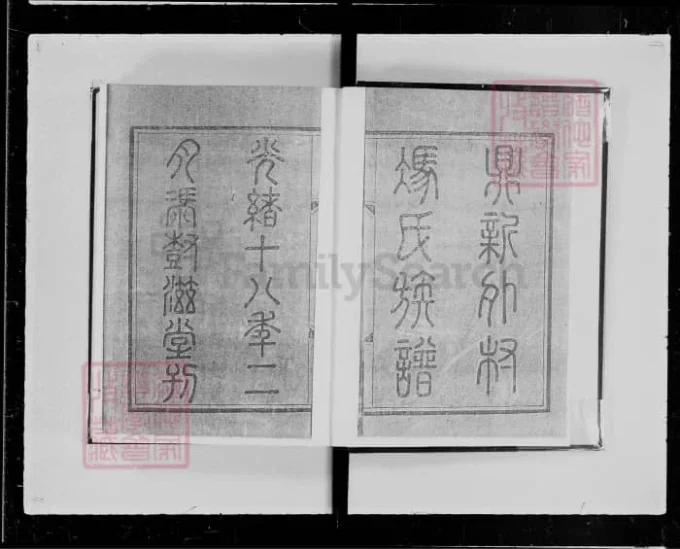 鼎新外村
馮氏族譜
光緒十八年二
月添敖滋堂刊
FamilySearch